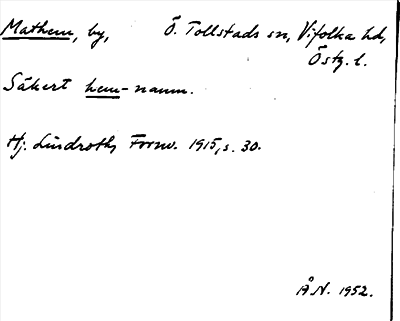 Mathem, by, Ö. Tollstads sn, Vifolka hd,
Östg. l.
Säkert hem-namn.
Hj. Lindroth, Fornv. 1915, s. 30.
Å N. 1952.